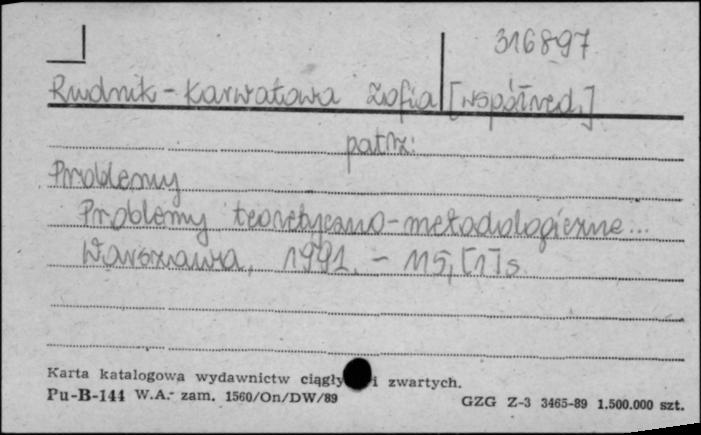 316897
Rudnik-Karwatowa Zofia [współred.]
patrz:
Problemy
Problemy teoretyczno-metodologiczne...
Warszawa, 1991. - 115, [1] s
Karta katalogowa wydawnictw ciągły i zwartych.
Pu-B-144 W.A.- zam. 1560/On/DW/89
GZG Z-3 3465-89 1.500.000 szt.